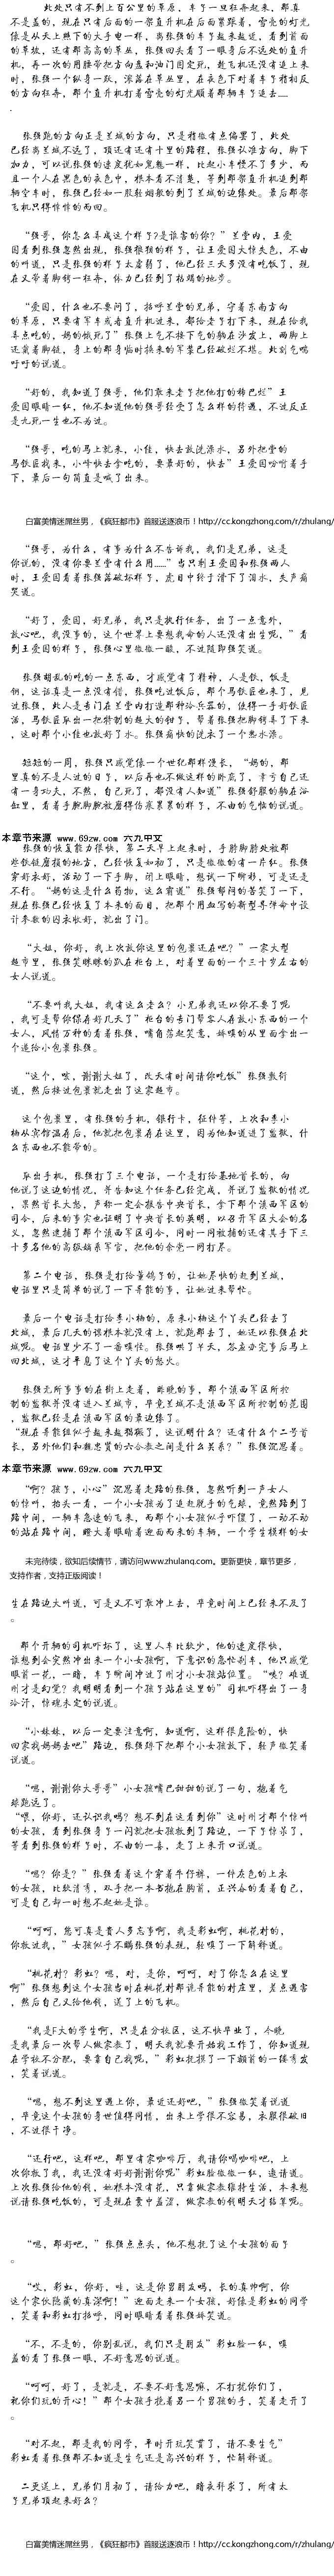 此处只有不到上百公里的草原，车子一旦狂奔起来，那真
不是盖的，现在只有后面的一架直升机在后面紧跟着，雪亮的灯光
像是从天上照下的大手电一样，当张强的车子越来越近，看到前面
的草坡，还有那高高的草丛，张强回头看了一眼身后不远处的直升
机，再一次的用腰带把方向盘和油门固定死，趁飞机还没有追上来
时，张强一个纵身一跃，深落在草丛里，在夜色下对着车子相反
的方向狂奔，那个直升机打着雪亮的灯光顺着那辆车子追去......
.
张强跑的方向正是兰城的方向，只是稍微有点偏罢了，此处
已经离兰城不远了，顶还有还有十里的路程，张强认准方向，脚下
加力，可以说张强的速度犹如鬼魅一样，比起小车慢不了多少，而
且一个人在黑色的夜色中，根本看不清楚，等到那架直升机追到那
辆空车时，张强已经如一股轻烟般的到了兰城的边缘处。最后那架
飞机只得悻悻的而回。
“强哥，你怎么弄成这个样子?是谁害的你？”兰堂内，王爱
国看到张强忽然出现，张强狼狈的样子，让王爱国大惊失色，不由
的叫道，只是张强的样子太虚弱了，他已经三天多没有吃饭了，现
在又带着脚镣一狂奔，体力已经到了枯竭的地步。
“爱国，什么也不要问了，招呼兰堂的兄弟，守着东南方向
的草原，只要有军车或者直升机过来，都给老子打下来，现在给我
弄点吃的，妈的饿死了”张强上气不接下气的躺在沙发上，两脚上
还戴着脚链，身上的那身临时换来的军装已经破烂不堪。此刻气喘
吁吁的说道。
“好的，我知道了强哥，他们敢来老子把他打的稀巴烂”王
爱国眼睛一红，他不知道他的强哥经受了怎么样的待遇，不过反正
是九死一生也不为过。
“强哥，吃的马上就来，小佳，快去放洗澡水，另外把堂的
马铁匠找来，小峰快去拿吃的，要最好的，快去”王爱国吩咐着手
下，最后一句简直是喊了出来。
白富美情迷屌丝男，《疯狂都市》首服送逐浪币！http://cc.kongzhong.com/r/zhulang/
“强哥，为什么，有事为什么不告诉我，我们是兄弟，这是
你说的，没有你要兰堂有什么用......”当只剩王爱国和张强两人
时，王爱国看着张强落破坏样子，虎目中轻于滑下了泪水，失声痛
哭道。
“好了，爱国，好兄弟，我只是执行任务，出了一点意外，
放心吧，我没事的，这个世界上要想我命的人还没有出生呢，”看
到王爱国的样子，张强心里微微一酸，不过随即强笑道。
张强胡乱的吃的一点东西，才感觉有了精神，人是铁，饭是
钢，这话真是一点没有错，张强吃过饭后，那个马铁匠也来了，见
过张强，此人是专门在兰堂内打造那种冷兵器的，使得一手好铁匠
活，马铁匠取出一把特制的超大的钳子，帮着张强把脚镣弄了下来
，这时那个小佳也放好了水。张强痛快的洗衣了一个热水澡。
短短的一周，张强只感觉像一个世纪那样漫长，“妈的，那
里真的不是人过的日子，以后再也不做这样的卧底了，幸亏自己还
有一身功夫，不然，自己死了，都没有人知道”张强舒服的躺在浴
缸里，看着手腕脚腕被磨得伤痕累累的样子，不由的气恼的说道。
本章节来源 www.69zw.com 六九中文
张强的恢复能力很快，第二天早上起来时，手腕脚腕处被那
些铁链磨损的地方，已经恢复如初了，只是微微的有一片红。张强
穿好衣好，活动了一下手脚，闭上眼睛，想试一下那秒，可是还是
不行。“妈的这是什么药物，这么霸道”张强郁闷的苦笑了一下，
现在张强已经恢复了本来的面目，把那个用血写的新型导弹命中设
计参数的囚衣收好，就出了门。
“大姐，你好，我上次放你这里的包裹还在吧？”一家大型
超市里，张强笑眯眯的趴在柜台上，对着里面的一个三十岁左右的
女人说道。
“不要叫我大姐，我有这么老么？小兄弟我还以你不要了呢
，我可是帮你保存好几天了”柜台的专门帮客人存放小东西的一个
女人，风情万种的看着张强，嘴角荡起笑意，娇嗔的从里面拿出一
个递给小包裹张强。
“这个，咳，谢谢大姐了，改天有时间请你吃饭”张强敷衍
道，然后接过包裹就走出了这家超市。
这个包裹里，有张强的手机，银行卡，证件等，上次和李小
楠从宾馆温存后，他就把包裹存在这里，因为他知道进了监狱，什
么东西也不能带的。
取出手机，张强打了三个电话，一个是打给基地首长的，向
他说了这边的情况，并告知这个任务已经完成，并说了监狱的情况
，果然首长大怒，声称一定会报告中央首长，拿下那个滇西军区的
司令，后来的事实也证明了中央首长的英明，以召开军区大会的名
义，忽然逮捕了那个滇西军区司令，同时一同被捕的还有其手下三
十多名他的高级嫡系军官，把他的余党一网打尽。
第二个电话，张强是打给董鸽子的，让她尽快的赶到兰城，
电话里只是简单的说了一下异能的事，让她过来帮忙。
最后一个电话是打给李小楠的，原来小楠这个丫头已经去了
北城，最后几天的课根本就没有上，就跑那去了，她还以张强在北
城呢。电话里少不了一番嗔怪。张强哄了半天，答应办完事后马上
回北城，这才平息了这个丫头的怒火。
张强无所事事的在街上走着，毗晚的事，那个滇西军区所控
制的监狱并没有进入兰城市，毕竟兰城不是滇西军区所控制的范围
，监狱已经是在滇西军区的最边缘了。
“现在异能组似乎越来越猖獗了，这说明什么？还有什么个二号首
长，另外他们和魏忠贤的六合教之间是什么关系？”张强沉思着。
本章节来源 www.69zw.com 六九中文
“啊？孩子，小心”沉思着走路的张强，忽然听到一声女人
的惊叫，抬头一看，一个小女孩为了追赶脱手的气球，竟然跑到了
路中间，一辆车急速的飞来，而那个小女孩似乎吓傻了，一动不动
的站在路中间，瞪大着眼睛看着迎面而来的车辆，一个学生模样的女
未完待续，欲知后续情节，请访问www.zhulang.com。更新更快，章节更多，
支持作者，支持正版阅读！
生在路边大叫道，可是又不可敢冲上去，毕竟时间上已经来不及了
。
那个开辆的司机吓坏了，这里人车比较少，他的速度很快，
谁想到会突然冲出来一个小女孩啊，下意识的急忙刹车，他只感觉
眼前一花，一暗，车子瞬间冲过了刚才小女孩站位置。“咦？难道
刚才是幻觉？我明明看到一个孩子站在这里的”司机吓得出了一身
冷汗，惊魂未定的说道。
“小妹妹，以后一定要注意啊，知道啊，这样很危险的，快
回家找妈妈去吧”路边，张强蹲下把那个小女孩放下，轻声微笑着
说道。
“嗯，谢谢你大哥哥”小女孩嘴巴甜甜的说了一句，抱着气
球跑远了。
“嘿，你好，还认识我吗？想不到在这看到你”这时刚才那个惊叫
的女孩，看到张强身子一闪就把女孩救到了路边，一下子惊呆了，
等看到张强的样子时，不由的一喜，走了上来开口说道。
“嗯？你是？”张强看着这个穿着牛仔裤，一件灰色的上衣
的女孩，比较清秀，双手把一本书抱在胸前，正兴奋的看着自己，
可是自己却一时想不起她是谁。
“呵呵，您可真是贵人多忘事啊，我是彩虹啊，桃花村的，
你救过我，”女孩似乎不瞒张强的表现，轻嗔了一下解释道。
“桃花村？彩虹？嗯，对，是你，呵呵，对了你怎么在这里
啊”张强想到这个女孩当时在桃花村那诡异能的村庄里，差点遇害
，然后自己又给他钱，送了上的飞机。
“我是F大的学生啊，只是在分校区，这不快毕业了，今晚
是我最后一次帮人做家教了，明天我就要开始找工作了，你知道现
在学校不分配，要靠自己找呢，”彩虹抚摸了一下额前的一缕秀发
，笑着说道。
“嗯，想不到这里遇上你，最近还好吧，”张强微笑着说道
，毕竟这个女孩的身世值得同情，出来上学很不容易，衣服很破旧
，不过很干净。
“还行吧，这样吧，那里有家咖啡厅，我请你喝咖啡吧，上
次你救了我，我还没有好好谢谢你呢”彩虹脸微微一红，邀请道。
上次张强给他的钱，她根本没有花，只靠做家教维持生活，本来想
说请张强吃饭的，可是现在囊中羞涩，做家教的钱明天才结算呢。
“嗯，那好吧，”张强点点头，他不想扰了这个女孩的面子
。
“哎，彩虹，你好，哇，这是你男朋友吗，长的真帅啊，你
这个家伙隐藏的真深啊！”迎面走来一个女孩，好像是彩虹的同学
，笑着和彩虹打招呼，同时眼睛看着张强娇笑道。
“不，不是的，你别乱说，我们只是朋友”彩虹脸一红，嗔
羞的看了张强一眼，不好意思的说道。
“呵呵，好了，是就是，不要不好意思嘛，不打扰你们了，
祝你们玩的开心！”那个女孩手挽着另一个男孩的手，笑着走开了
。
“对不起，那是我的同学，平时开玩笑贯了，请不要生气”
彩虹看着张强都不知道是生气还是高兴的样子，忙解释道。
二更送上，兄弟们月初了，请给力吧，暗衣拜求了，所有太
子兄弟顶起来好么？
白富美情迷屌丝男，《疯狂都市》首服送逐浪币！http://cc.kongzhong.com/r/zhulang/